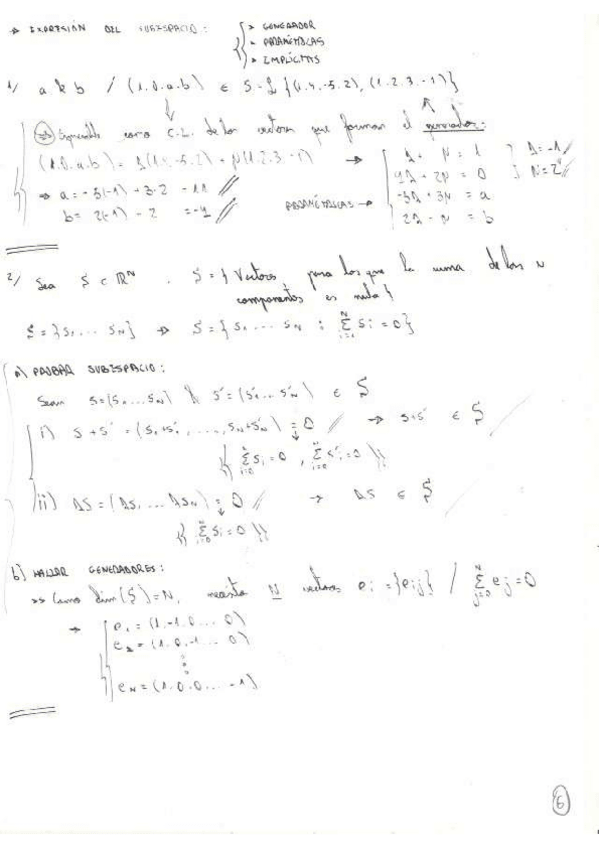 → EXPRESIÓN DEL SUBESPACIO: { > GENERADOR
> PARAMÉTRICAS
> IMPLÍCITAS
1/ a & b / (1.0.a.b) ∈ S = L {(1.4.-5.2), (1.2.3.-1)}
⇒ Exprésable como C.L. de los vectores que forman el generador:
(1.0.a.b) = λ(1.4.-5.2) + μ(1.2.3.-1) → { λ + μ = 1 } λ = -1 //
4λ + 2μ = 0 } μ = 2 //
⇒ a = -5(-1) + 3·2 = 11 // -5λ + 3μ = a
b = 2(-1) - 2 = -4 // PARAMÉTRICAS → 2λ - μ = b
2/ Sea S ⊂ ℝᴺ . S = { Vectores para los que la suma de las N
componentes es nula }
S = {s₁ ... sN} ⇒ S = {s₁ ... sN : Σ si = 0}
a) PROBAR SUBESPACIO:
Sean s = (s₁ ... sN) & s' = (s'₁ ... s'N) ∈ S
i) s + s' = (s₁+s'₁, ..., sN+s'N) = 0 // → s+s' ∈ S
{{ Σ si = 0 , Σ s'i = 0 }}
ii) λs = (λs₁ ... λsN) = 0 // → λs ∈ S
{{ Σ si = 0 }}
b) HALLAR GENERADORES:
>> Como dim(S) = N, necesito N vectores ei = {eij} / Σ ej = 0
→ { e₁ = (1.-1.0 ... 0)
e₂ = (1.0.-1 ... 0)
⋮
eN = (1.0.0 ... -1)
6